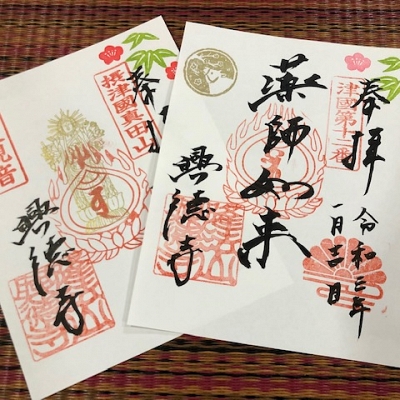 奉拝
津國第十二番
薬師如来
興徳寺
令和三年
一月三日
奉
摂津國真田山
観音
興徳寺